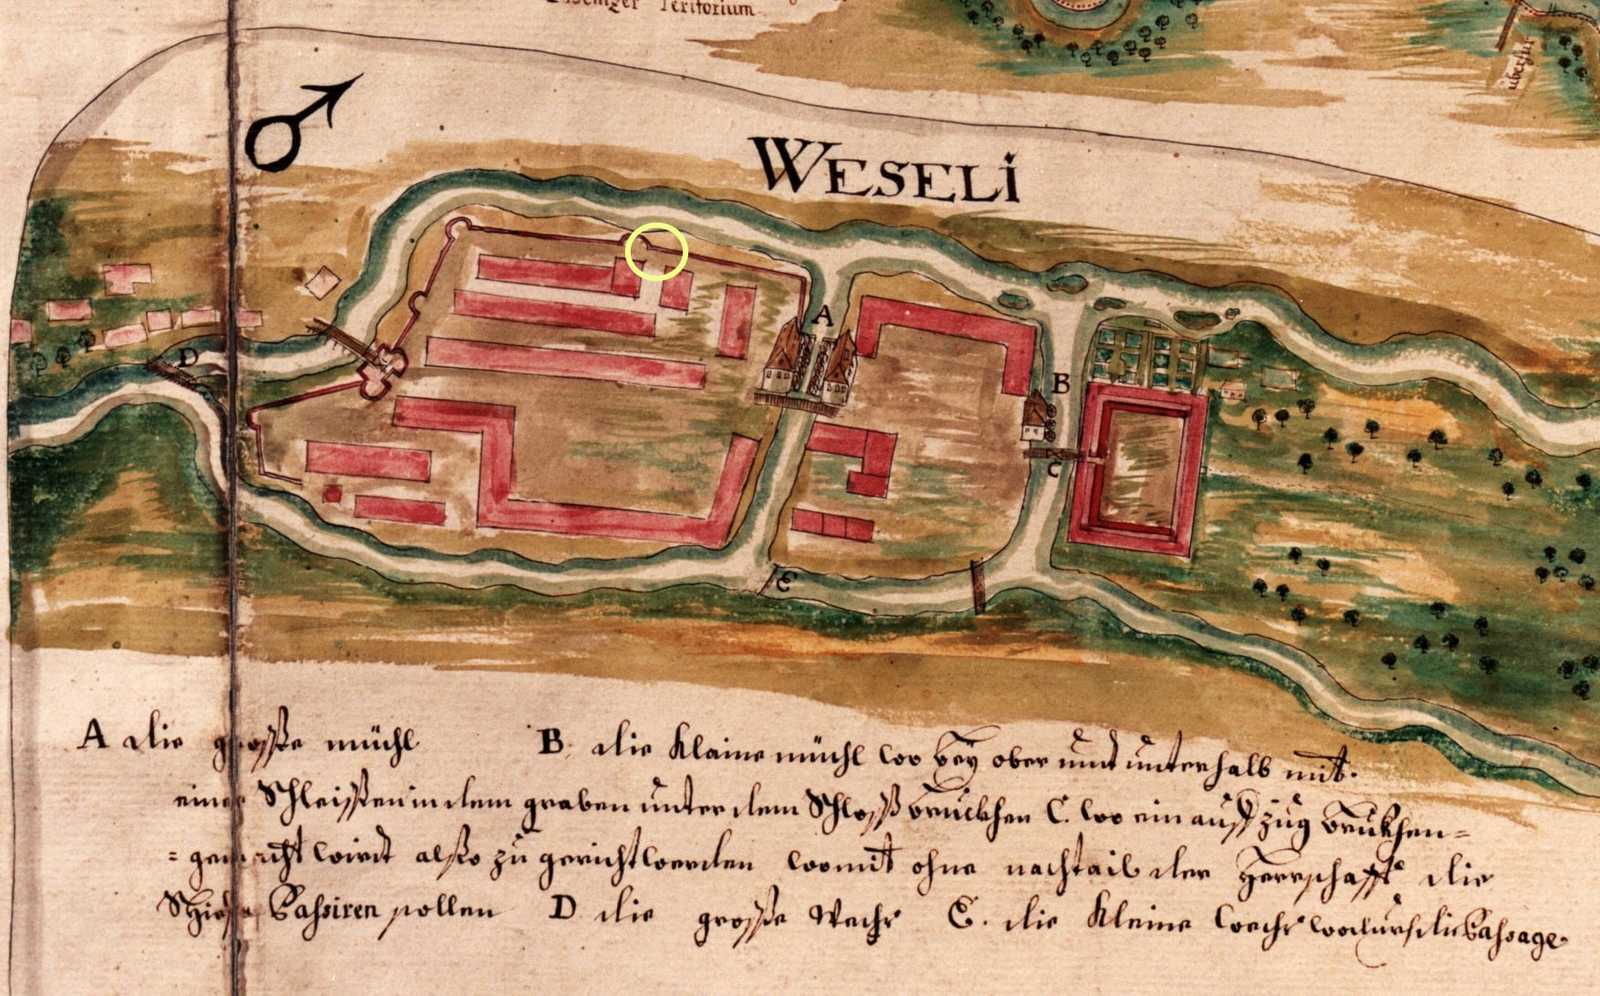 Teritorium
überfur
WESELi
A
B
C
D
E
A die große mühl B. die Klaine mühl wo bey ober undt unterhalb mit.
einer Schleißen in dem graben unter dem Schloß brückhen C. wo ein aufzug brukhen=
=gemacht wirdt alßo zu gericht werden womit ohne nachtail der Herrschafft die
Schieffe Passiren sollen D die große Wehr E. die Kleine Wehr wodurch die Passage.